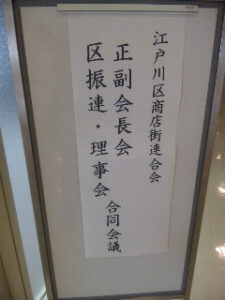 江戸川区商店街連合会
正副会長会
区振連・理事会 合同会議